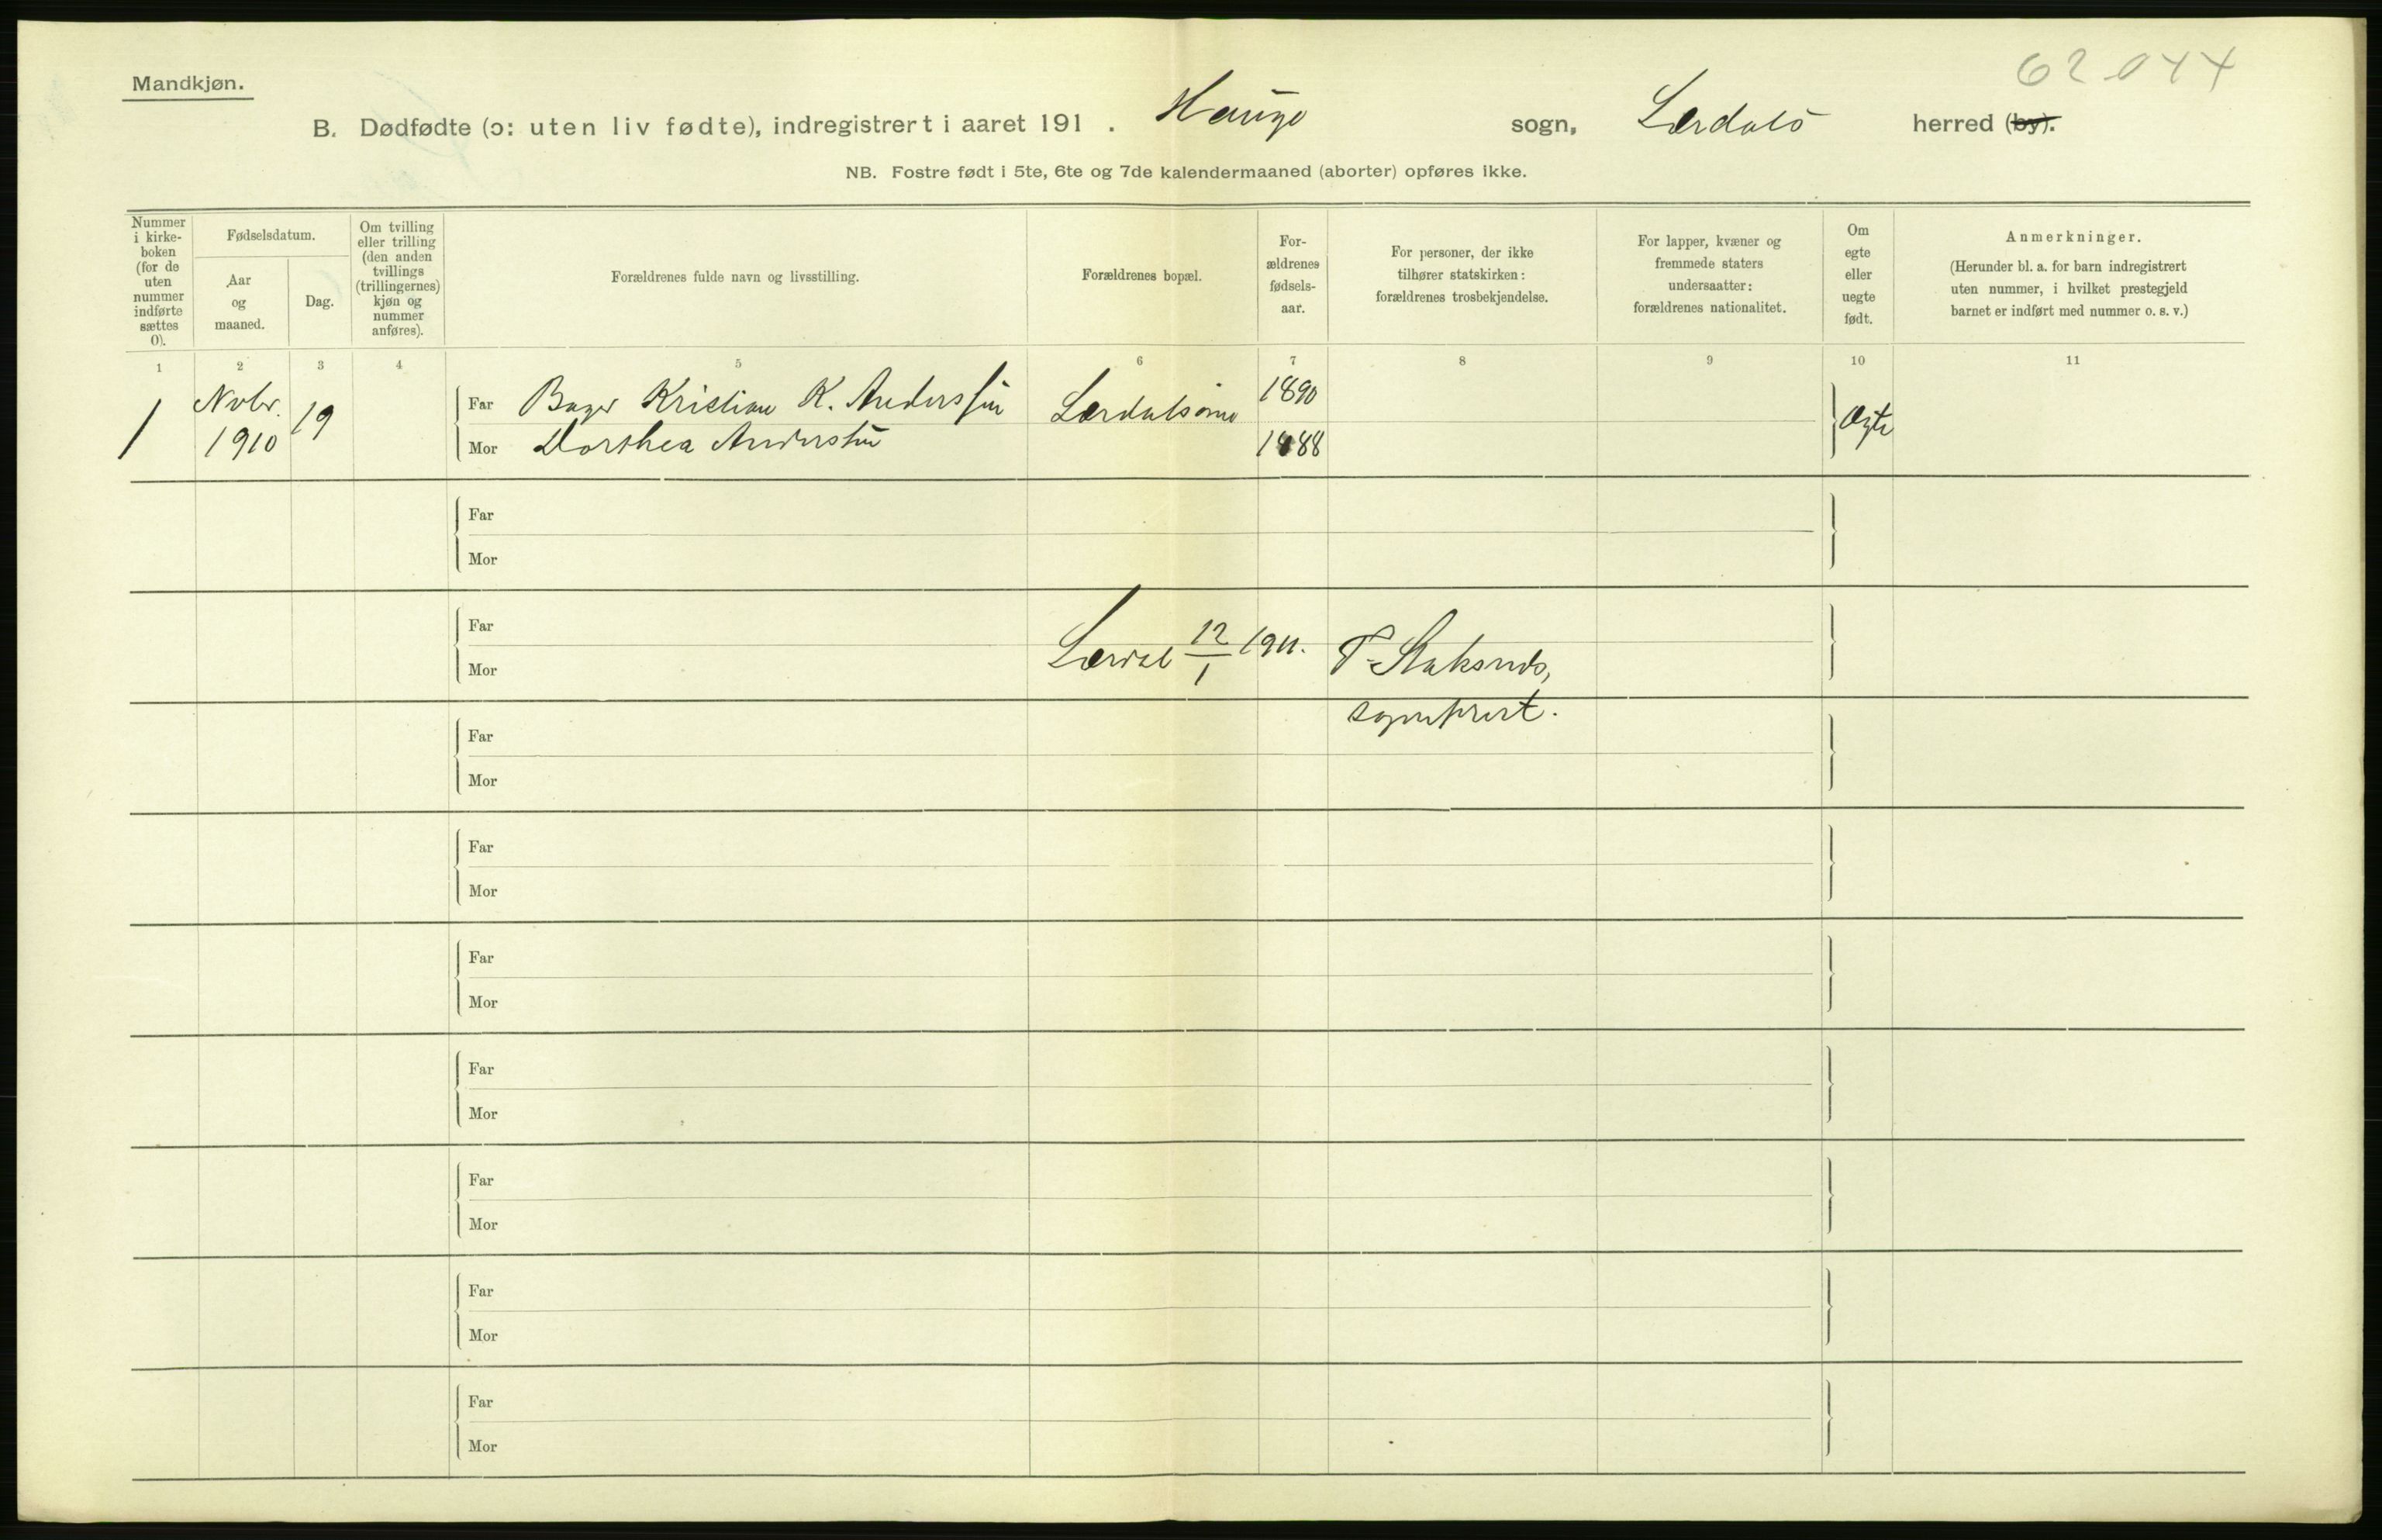 62 044
Mandkjøn.
B. Dødfødte (ɔ: uten liv fødte), indregistrert i aaret 191 . Hauge sogn, Lærdals herred (by).
NB. Fostre født i 5te, 6te og 7de kalendermaaned (aborter) opføres ikke.
Nummer i kirke-boken (for de uten nummer indførte sættes 0).
Fødselsdatum.
Aar og maaned.
Dag.
Om tvilling eller trilling (den anden tvillings (trillingernes) kjøn og nummer anføres).
Forældrenes fulde navn og livsstilling.
Forældrenes bopæl.
For-ældrenes fødsels-aar.
For personer, der ikke tilhører statskirken: forældrenes trosbekjendelse.
For lapper, kvæner og fremmede staters undersaatter: forældrenes nationalitet.
Om egte eller uegte født.
Anmerkninger.
(Herunder bl. a. for barn indregistrert uten nummer, i hvilket prestegjeld barnet er indført med nummer o. s. v.)
1 2 3 4 5 6 7 8 9 10 11
1 Novbr. 1910 19 Far Bager Kristian K. Anderssen Lærdalsøren 1890 Ægte
Mor Dorthea Anderssen 1888
Far
Mor
Far
Mor
Lærdal 12/1 1911.
sogneprest.
Far
Mor
Far
Mor
Far
Mor
Far
Mor
Far
Mor
Far
Mor
Far
Mor